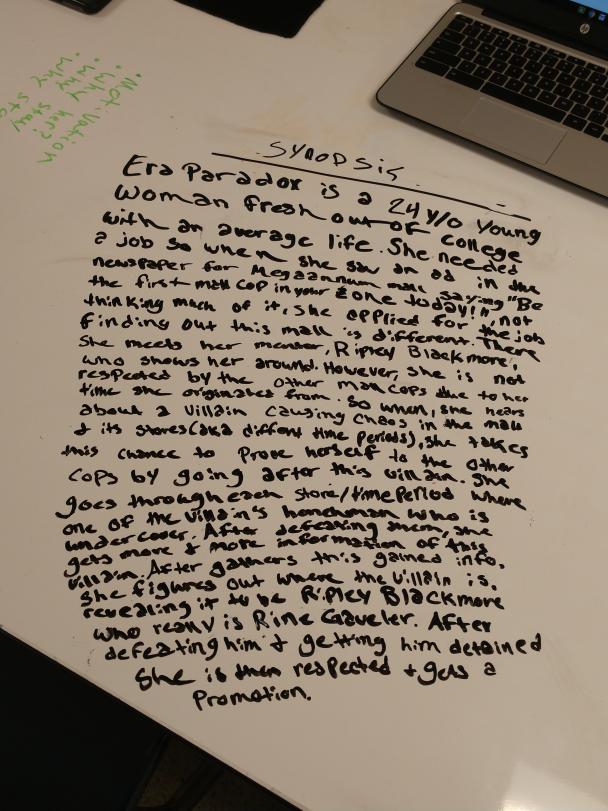 • Motivation
• Why her?
• Why stay
SYNOPSIS
Era Paradox is a 24 y/o young
woman fresh out of college
with an average life. She needed
a job so when she saw an ad in the
newspaper for Megaannum mall saying "Be
the first mall cop in your zone today!", not
thinking much of it, she applied for the job
finding out this mall is different. There
she meets her mentor, Ripley Blackmore,
who shows her around. However, she is not
respected by the other mall cops due to her
time she originates from. So when, she hears
about a villain causing chaos in the mall
& its stores (aka diffent time periods), she takes
this chance to prove herself to the other
cops by going after this villain. She
goes through each store/time period where
one of the villain's henchman who is
undercover. After defeating them, she
gets more & more information of this
villain. After gathers this gained info,
she figures out where the villain is,
revealing it to be Ripley Blackmore
who really is Rine Gaveler. After
defeating him & getting him detained
she is then respected + gets a
Promotion.